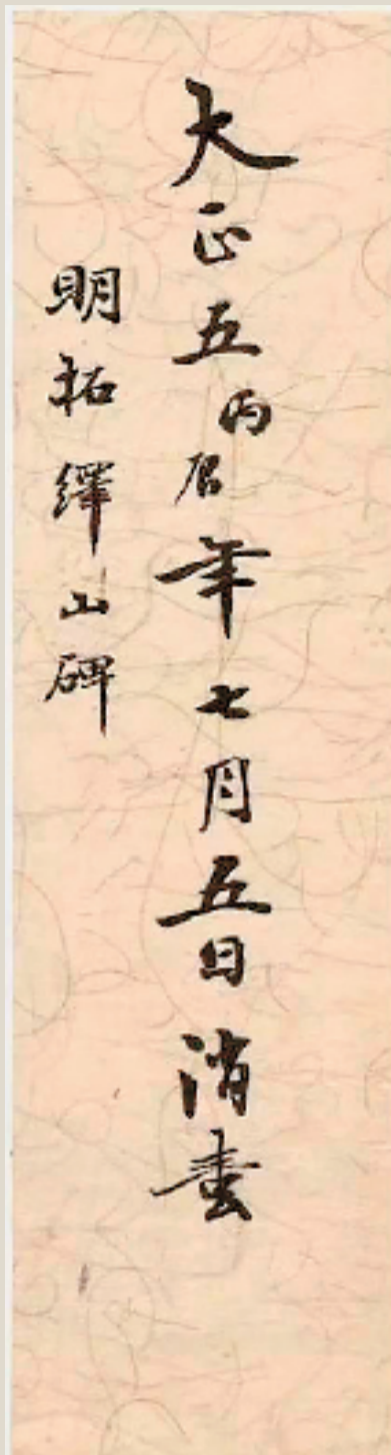 大正五丙辰年七月五日消毒
明拓繹山碑